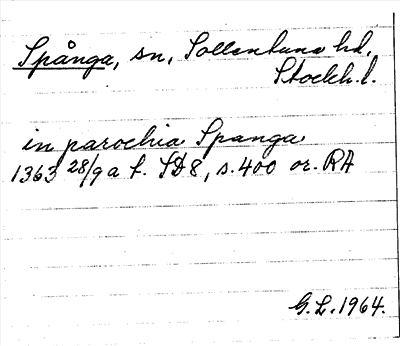 Spånga, sn, Sollentuna hd,
Stockh. l.
in parochia Spanga
1363 28/9 a f. SD 8, s. 400 or. RA
G. L. 1964.